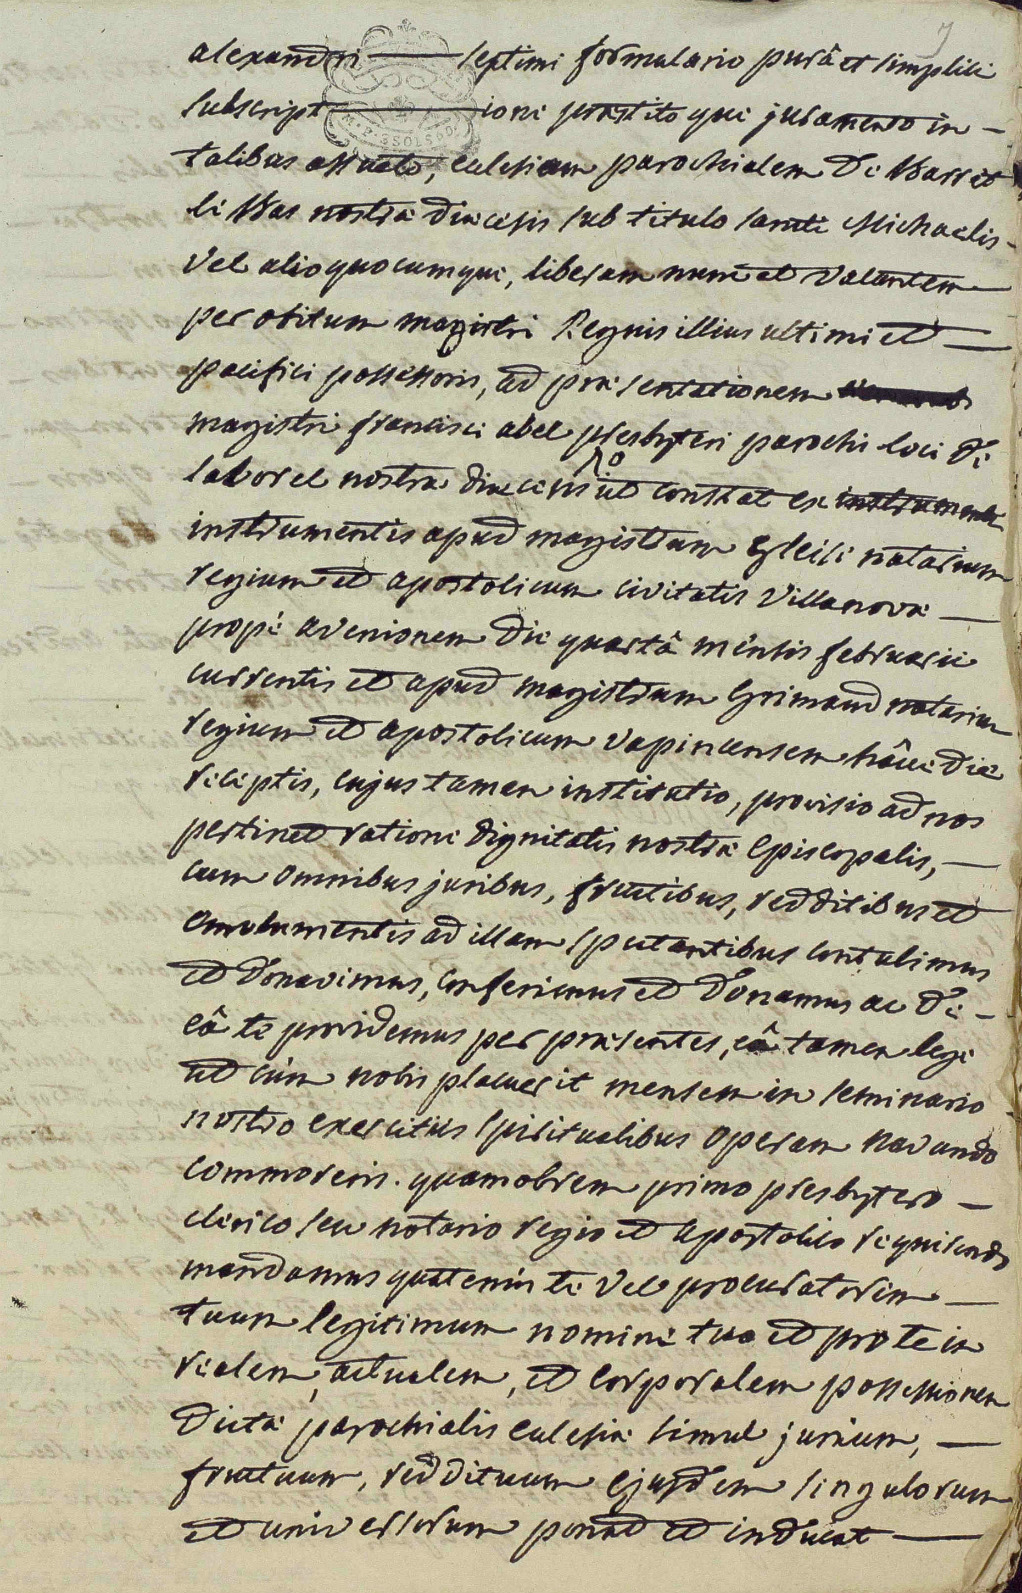 7
alexandri septimi formulario purâ et simplici
subscript ione prestitoque juramento in
talibus assueto, ecclesiam parochialem de Barret
le Bas nostrae diaecesis sub titulo sancti Michaelis
vel alio quocumque, liberam nunc et vacantem
per obitum magistri Reynis illius ultimi et
pacifici possessoris, ad praesentationem
magistri francisci abel presbyteri parochi loci de
laborel nostrae diaecesis ut constat ex instrumentis
instrumentis apud magistrum notarium
regium et apostolicum civitatis Villanovae
propè avenionem die quartâ mensis februarii
currentis et apud magistrum Grimaud notarium
regium et apostolicum vapincensem hâce die
receptis, cujus tamen institutio, provisio ad nos
pertinet ratione dignitatis nostrae Episcopalis,
cum omnibus juribus, fructibus, redditibus et
emolumentis ad illam spectantibus contulimus
et donavimus, conferimus et donamus ac de
eâ te providemus per praesentes, eâ tamen lege
ut cùm nobis placuerit mensem in seminario
nostro exercitiis spiritualibus operam navando
commoreris. quamobrem primo presbytero
clerico seu notario regio et apostolico requirendo
mandamus quatenus te vel procuratorem
tuum legitimum nomine tuo et pro te in
realem, actualem, et corporalem possessionem
dictae parochialis ecclesiae simul jurium,
fructuum, reddituum ejusdem singulorum
et universorum ponat et inducat